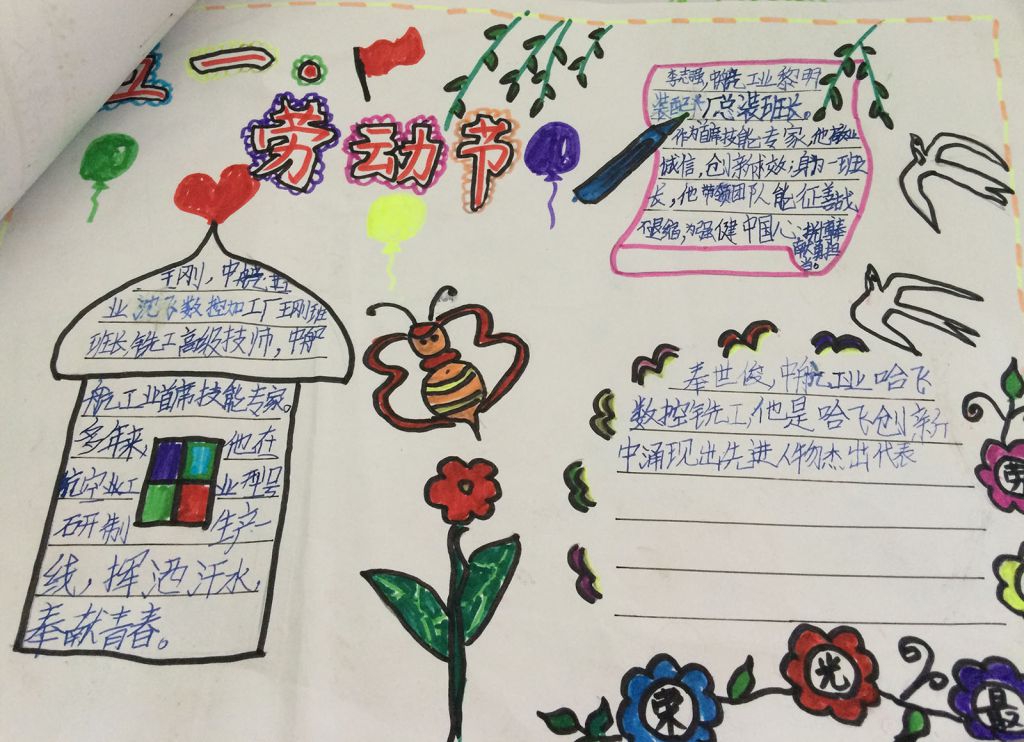 五一·
劳动节
李志强,中航工业黎明
装配厂总装班长。
作为首席技能专家,他敬业
诚信,创新求效;身为一班
长,他带领团队能征善战
不退缩,为强健中国心,拼搏奉
献,勇担
当。
王刚,中航工
业沈飞数控加工厂王刚班
班长铣工高级技师,中航
航工业首席技能专家。
多年来,他在
航空业工业型号
研制生产一
线,挥洒汗水,
奉献青春。
奉世俊,中航工业哈飞
数控铣工,他是哈飞创新
中涌现出先进人物杰出代表
劳
最
光
荣